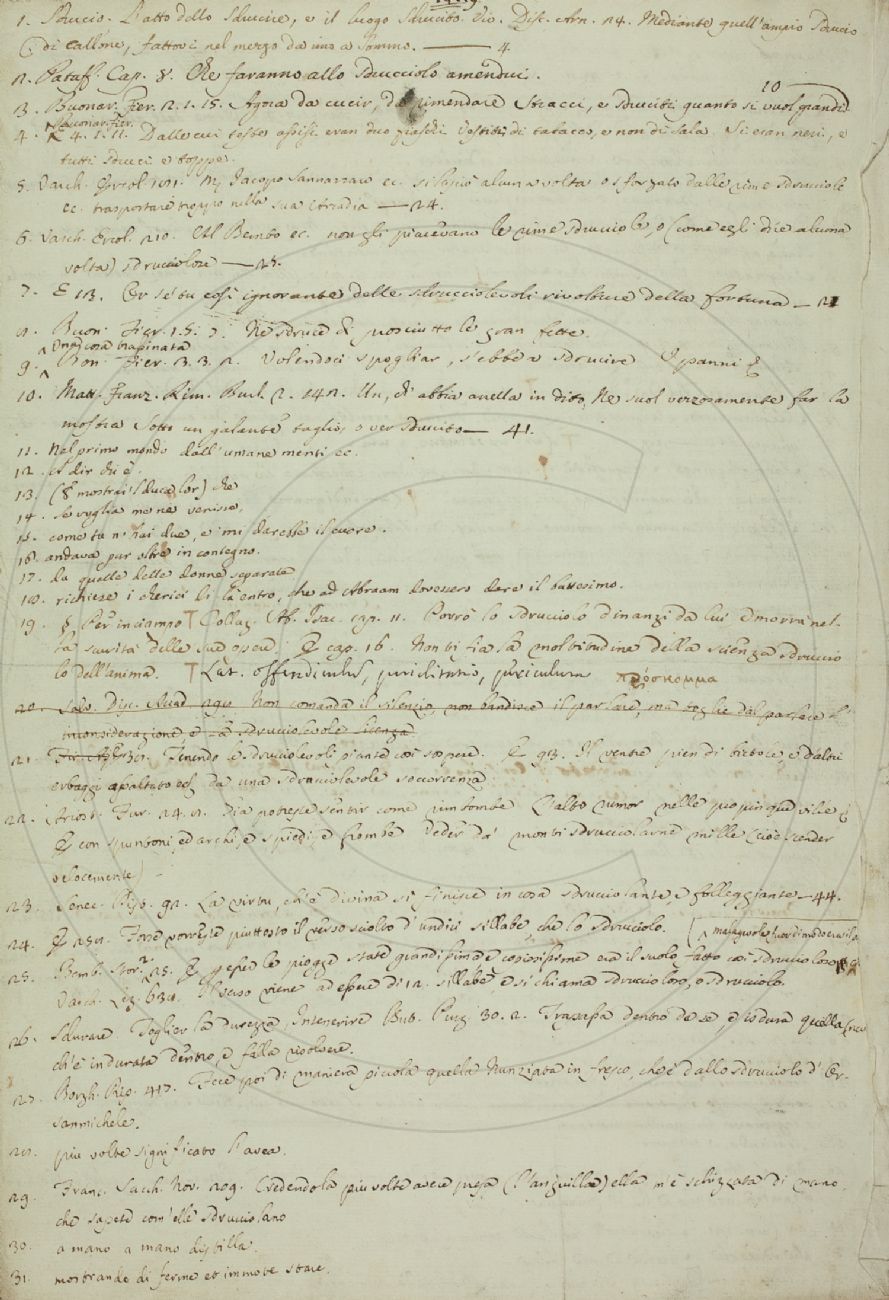 1. Sdrucio. L'atto dello sdrucire, e il luogo sdrucito. Vio. Disc. Arn. 24. Mediante quell'ampio sdrucio
di Callone, fattovi nel mezzo da imo a sommo. — 4
2. Pataff. Cap. 8. Che faranno allo sdrucciolo amendui.
10
3. Buonar. Fier. 2. 1. 15. Agora da cucir, da rimendare stracci, e sdruciti quanto si vuol grandi
Buonar. Fier.
4. 4. 1. 11. Dalle cui teste assisi eran duo vestiti di tabacco, e non di sala. Si eran neri, e
tutti sdruci e toppe.
5. Varch. Ercol. M. Jacopo Sannazzaro ec. si lasciò alcuna volta o sforzato dalle rime sdrucciole
ec. trasportare troppo nella sua Arcadia — 24.
6. Varch. Ercol. 210. Al Bembo ec. non gli piacevano le rime sdrucciole, o (come egli dice alcuna
volta) sdrucciolose — 25.
7. E 113. Or se' tu così ignorante delle sdrucciolevoli rivolture della fortuna — 21
8. Buon. Fier. 1. 5. 7. Ne sdruce di prosciutto le gran fette.
Una cosa trapinata
9. Bon. Fier. 3. 3. 2. Volendoci spogliar, s'ebbe a sdrucire I panni
10. Matt. Franz. Rim. Burl. 2. 142. Un, ch' abbia anella in dito, Ne suol vezzosamente far la
mostra Sotto un galante taglio, o ver sdrucito — 41.
11. Nel primo mondo dall'umane menti ec.
12. A dir chi è.
13. (E mostrai sduca lor) che
14. Se voglia me ne venisse,
15. come tu n'hai due, e mi daresse il cuore.
16. andava pur oltre in contegno.
17. da quelle delle donne separate
18. richiese i cherici di là entro, che ad Abraam dovessero dare il battesimo.
19. § Per inciampo T Collaz. Ab. Isac. cap. 11. Porrò lo sdrucciolo dinanzi da lui e morrà nel-
la scurità delle sue opere. E cap. 16. Non ti sia la moltitudine della scienza sdruccio
lo dell'anima. T Lat. offendiculus, periculum πρόσκομμα
20. Salv. Disc. Non comanda il silenzio, non bandisce il parlare, ma toglie dal parlare l'
inconsiderazione, e la sdrucciolevole licenza
21. Tenendo le sdrucciolevoli piante così sospese. E 93. Il ventre pien di bietole, e d'altri
erbaggi appaltato ec. da una sdrucciolevole soccorrenza.
22. Ariost. Fur. 24. 8. Già potreste sentir come rimbombe L'alto rumor nelle propinque ville
E con spuntoni, ed archi, e spiedi, e frombe Veder da' monti sdrucciolarne mille (cioè scender
velocemente)
23. Senec. Pist. 92. La virtù, ch'è divina si finisce in cosa sdrucciolante, e folleggiante — 44.
24. E 252. Forse vorreste piuttosto il verso sciolto d'undici sillabe, che lo sdrucciolo.
25. Bemb. Stor. 2. 25. E per esser le piogge state grandissime e copiosissime era il suolo fatto così sdruccioloso
Varch. Lez. 632. Il verso viene ad essere di 12. sillabe, e si chiama sdruccioloso, o sdrucciolo.
26. Sdurare. Toglier la durezza, Intenerire. But. Purg. 30. 2. Trapassa dentro da sé, e sdura quella
ch'è indurata dentro, e falla risolvere.
27. Borgh. Rip. 417. Fece poi di maniera piccola quella Nunziata in fresco, che è dallo sdrucciolo d'Or-
sanmichele.
28. più volte significato l'avea.
29. Franc. Sacch. Nov. 209. Credendola più volte avere presa (l'anguilla) ella m'è schizzata di mano,
che sapete com'elle sdrucciolano
30. a mano a mano distilla.
31. mostrando di ferme et immote stare.